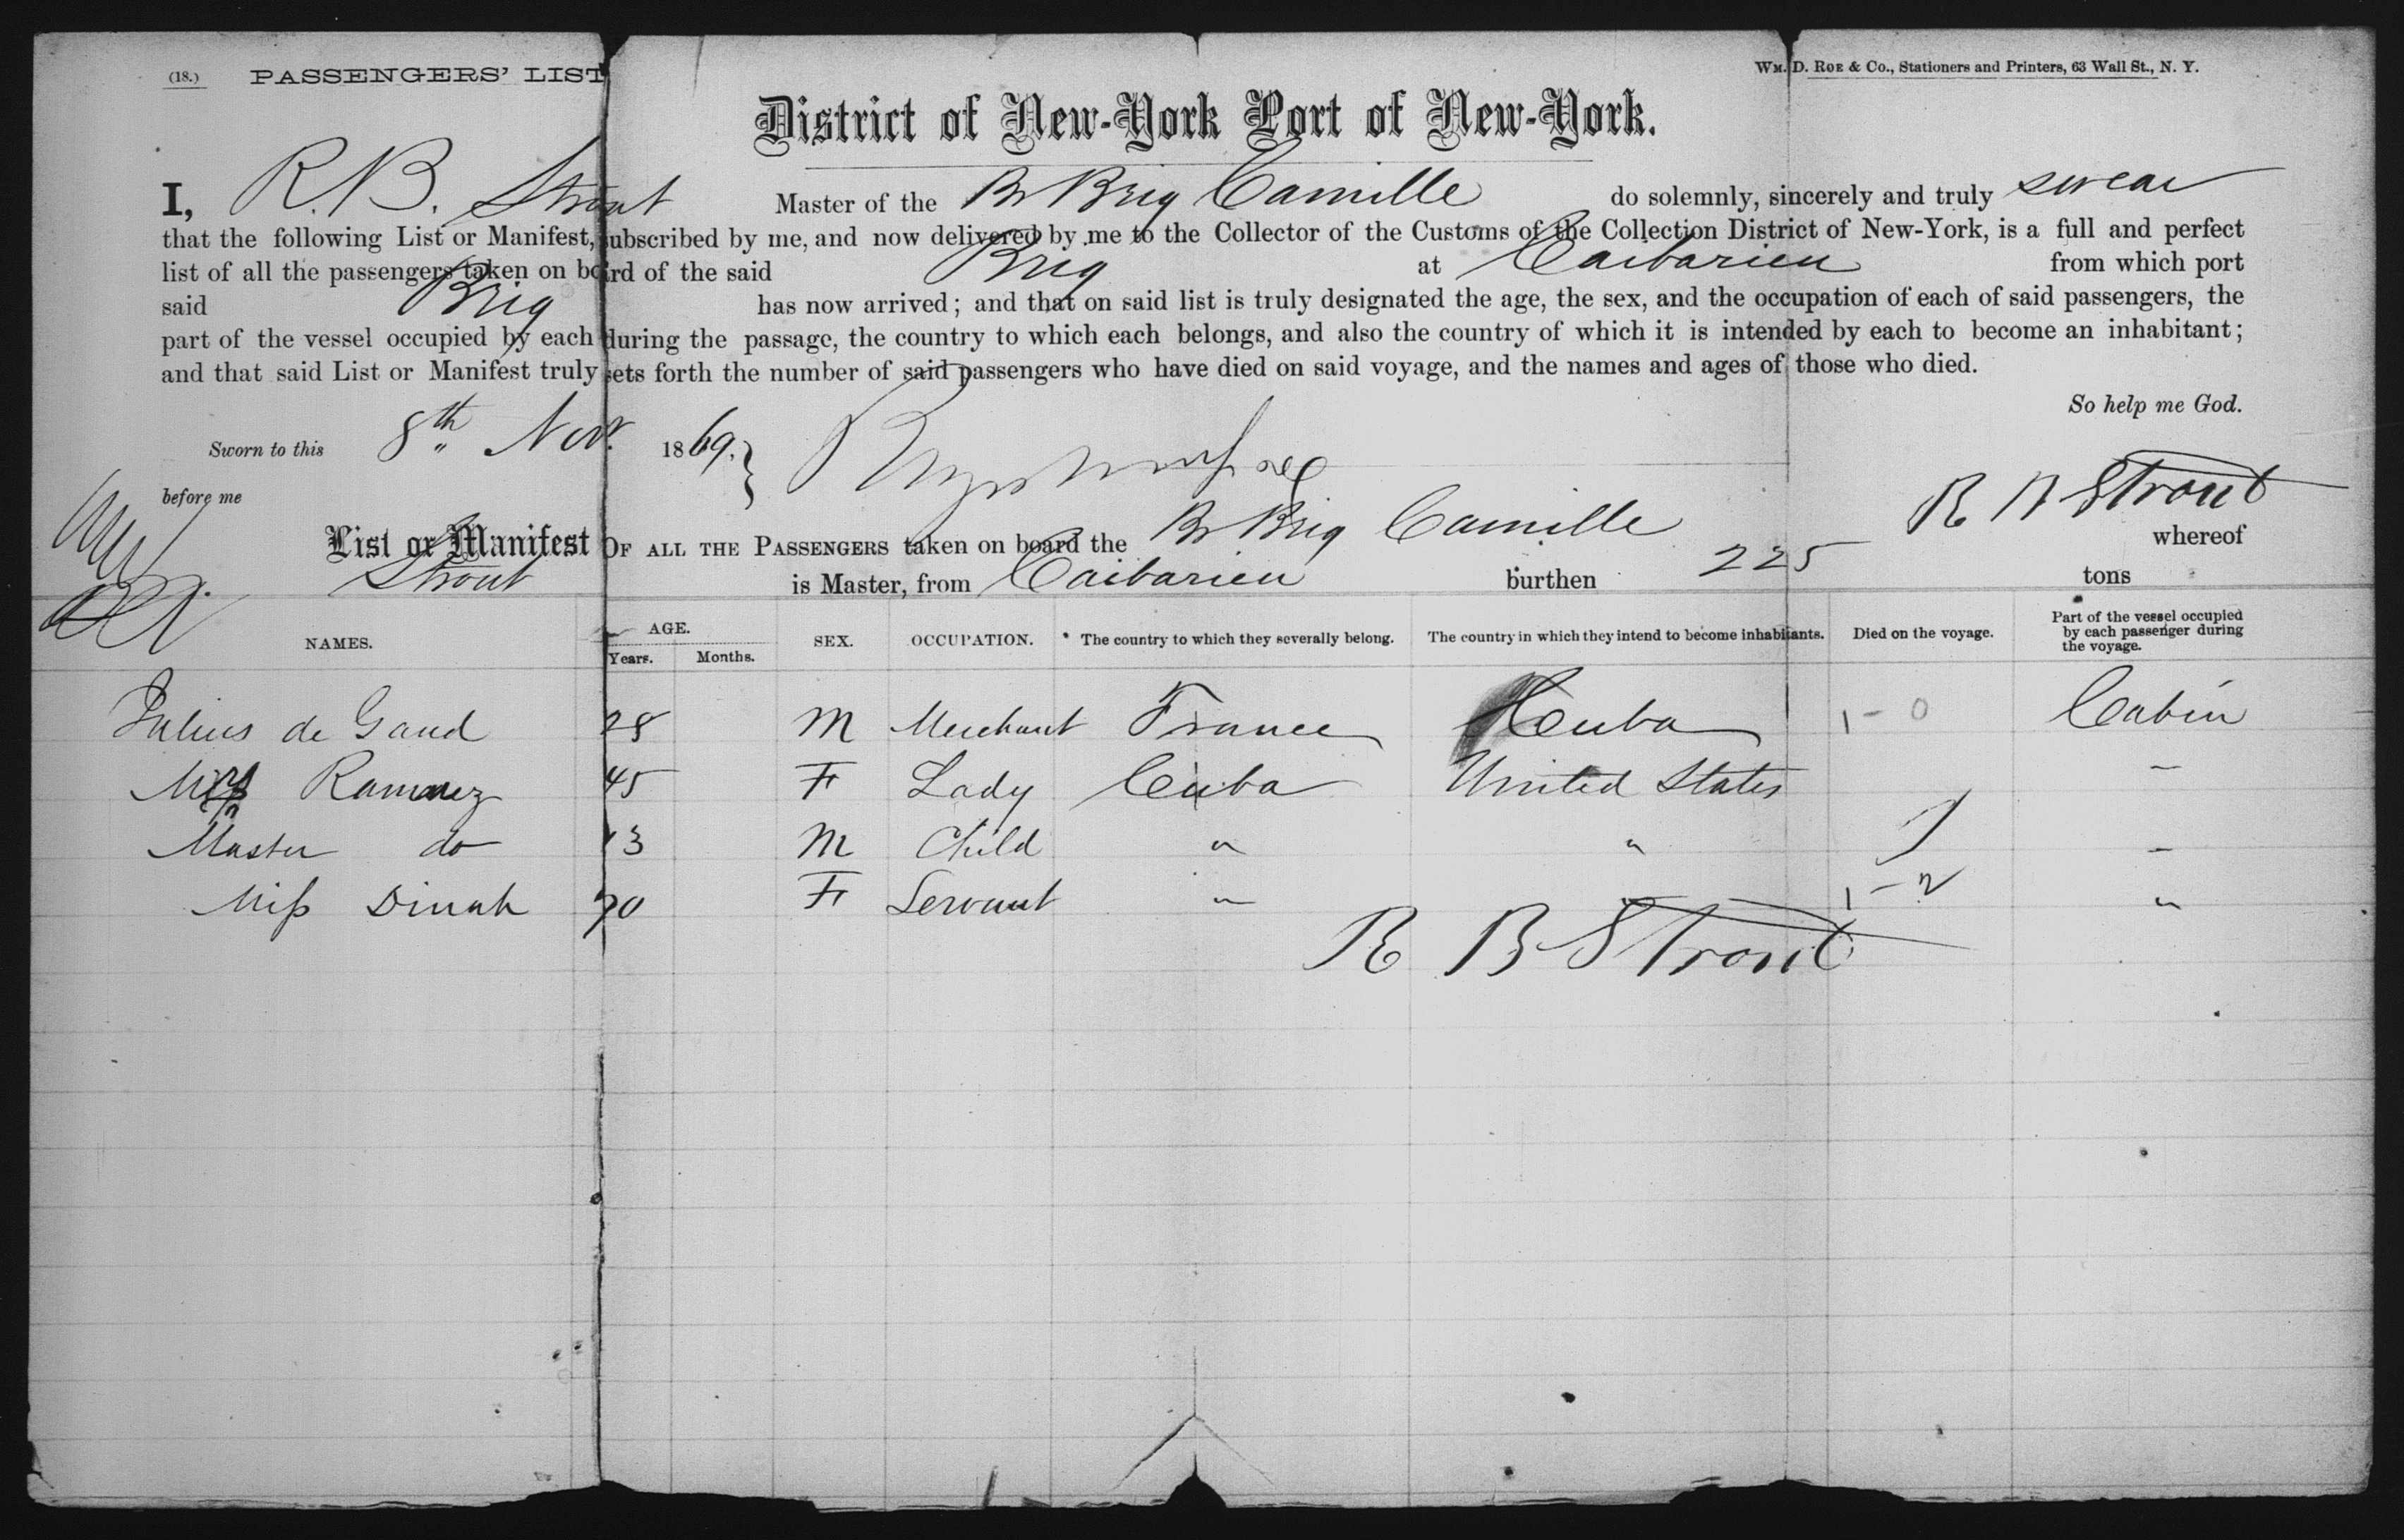 (18.) PASSENGERS' LIST
WM. D. ROE & Co., Stationers and Printers, 63 Wall St., N. Y.
District of New-York Port of New-York.
I, R. B. Strout Master of the Br Brig Camille do solemnly, sincerely and truly swear
that the following List or Manifest, subscribed by me, and now delivered by me to the Collector of the Customs of the Collection District of New-York, is a full and perfect
list of all the passengers taken on board of the said Brig at Caibarien from which port
said Brig has now arrived; and that on said list is truly designated the age, the sex, and the occupation of each of said passengers, the
part of the vessel occupied by each during the passage, the country to which each belongs, and also the country of which it is intended by each to become an inhabitant;
and that said List or Manifest truly sets forth the number of said passengers who have died on said voyage, and the names and ages of those who died.
So help me God.
Sworn to this 8th Nov. 1869.
before me
R B Strout
List or Manifest OF ALL THE PASSENGERS taken on board the Br Brig Camille whereof
Strout is Master, from Caibarien burthen 225 tons
NAMES. AGE. Years. Months. SEX. OCCUPATION. The country to which they severally belong. The country in which they intend to become inhabitants. Died on the voyage. Part of the vessel occupied by each passenger during the voyage.
Julius de Gaud 28 M Merchant France Cuba 1-0 Cabin
Ramirez 45 F Lady Cuba United States –
Master do 13 M Child " " –
Miss Dinah F Servant " " 1-2 "
R B Strout